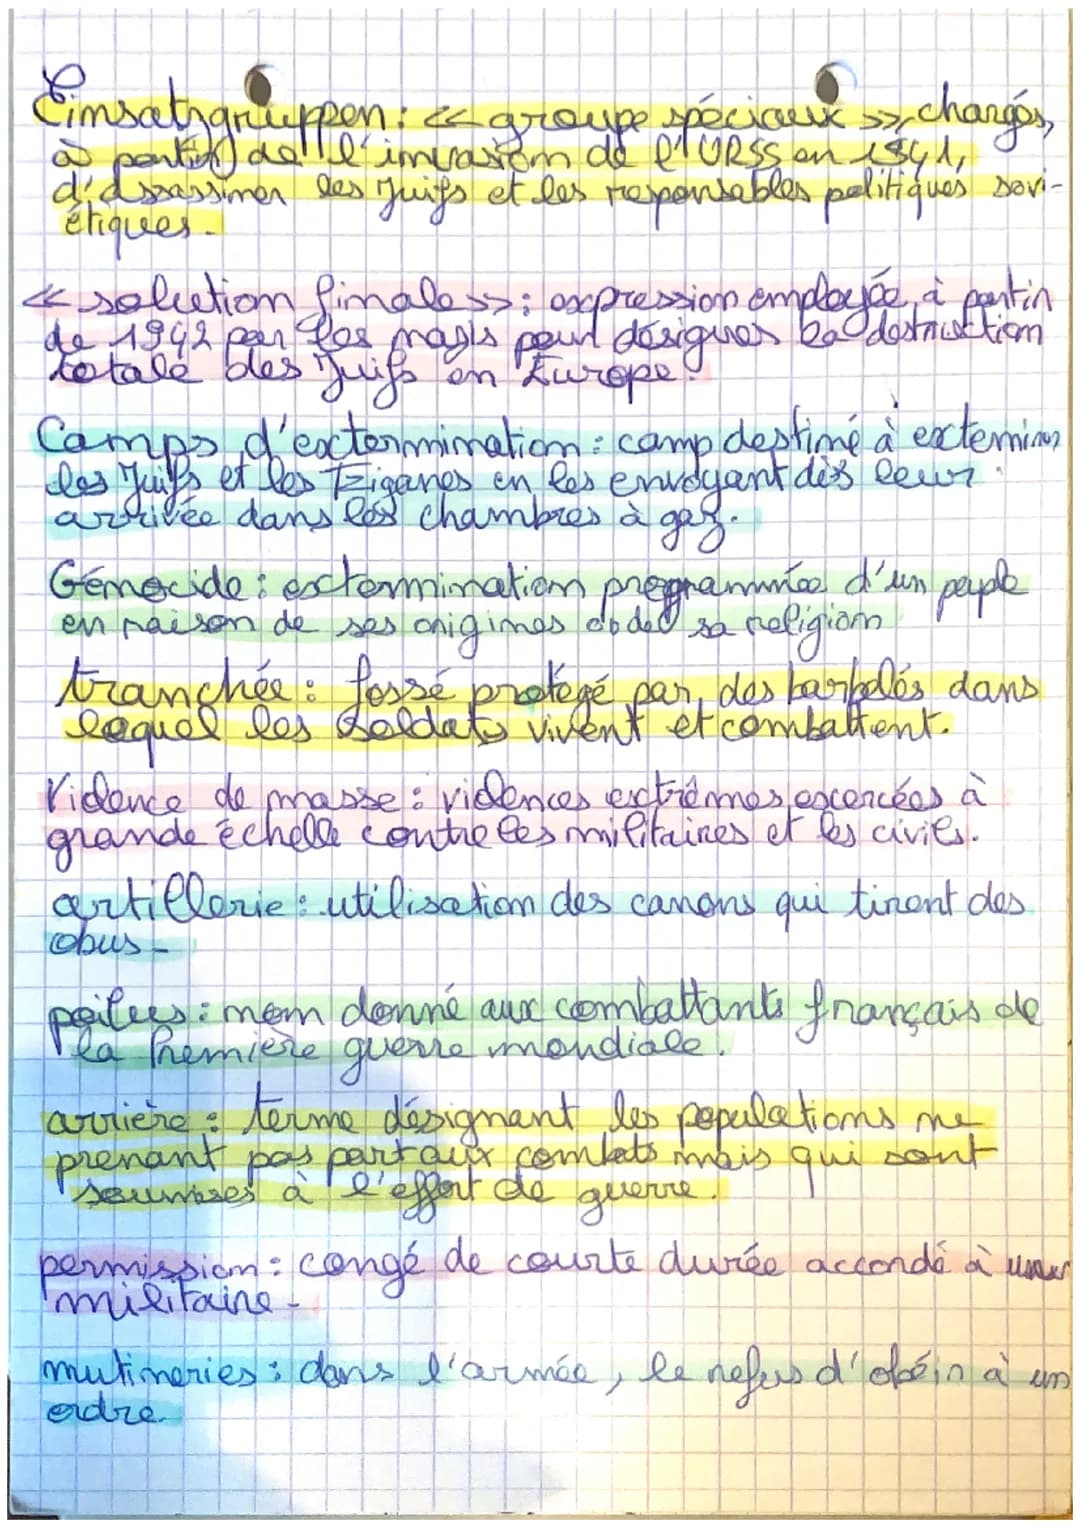 Einsatzgruppen : << groupe spéciaux >>, chargés,
à partir de l'invasion de l'URSS en 1941,
d'assassiner les Juifs et les responsables politiques sovi-
étiques.
<< solution finale >> : expression employée, à partir
de 1942 par les nazis pour désigner la destruction
totale des Juifs en Europe.
Camps d'extermination : camp destiné à exterminer
les Juifs et les Tziganes en les envoyant dès leur
arrivée dans les chambres à gaz.
Génocide : extermination programmée d'un peuple
en raison de ses origines de sa religion
tranchée : fossé protégé par des barbelés dans
lequel les soldats vivent et combattent.
Violence de masse : violences extrêmes exercées à
grande échelle contre les militaires et les civils.
artillerie : utilisation des canons qui tirent des
obus -
poilus : nom donné aux combattants français de
la Première guerre mondiale.
arrière : terme désignant les populations ne
prenant pas part aux combats mais qui sont
soumises à l'effort de guerre.
permission : congé de courte durée accordé à un
militaire -
mutineries : dans l'armée, le refus d'obéir à un
ordre